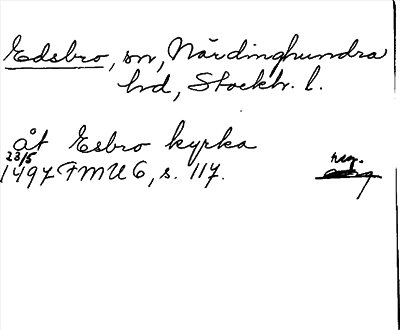 Edsbro, sn, Närdinghundra
hd, Stockh. l.
åt Esbro kyrka
23/5
1497 FMU 6, s. 117.
reg.